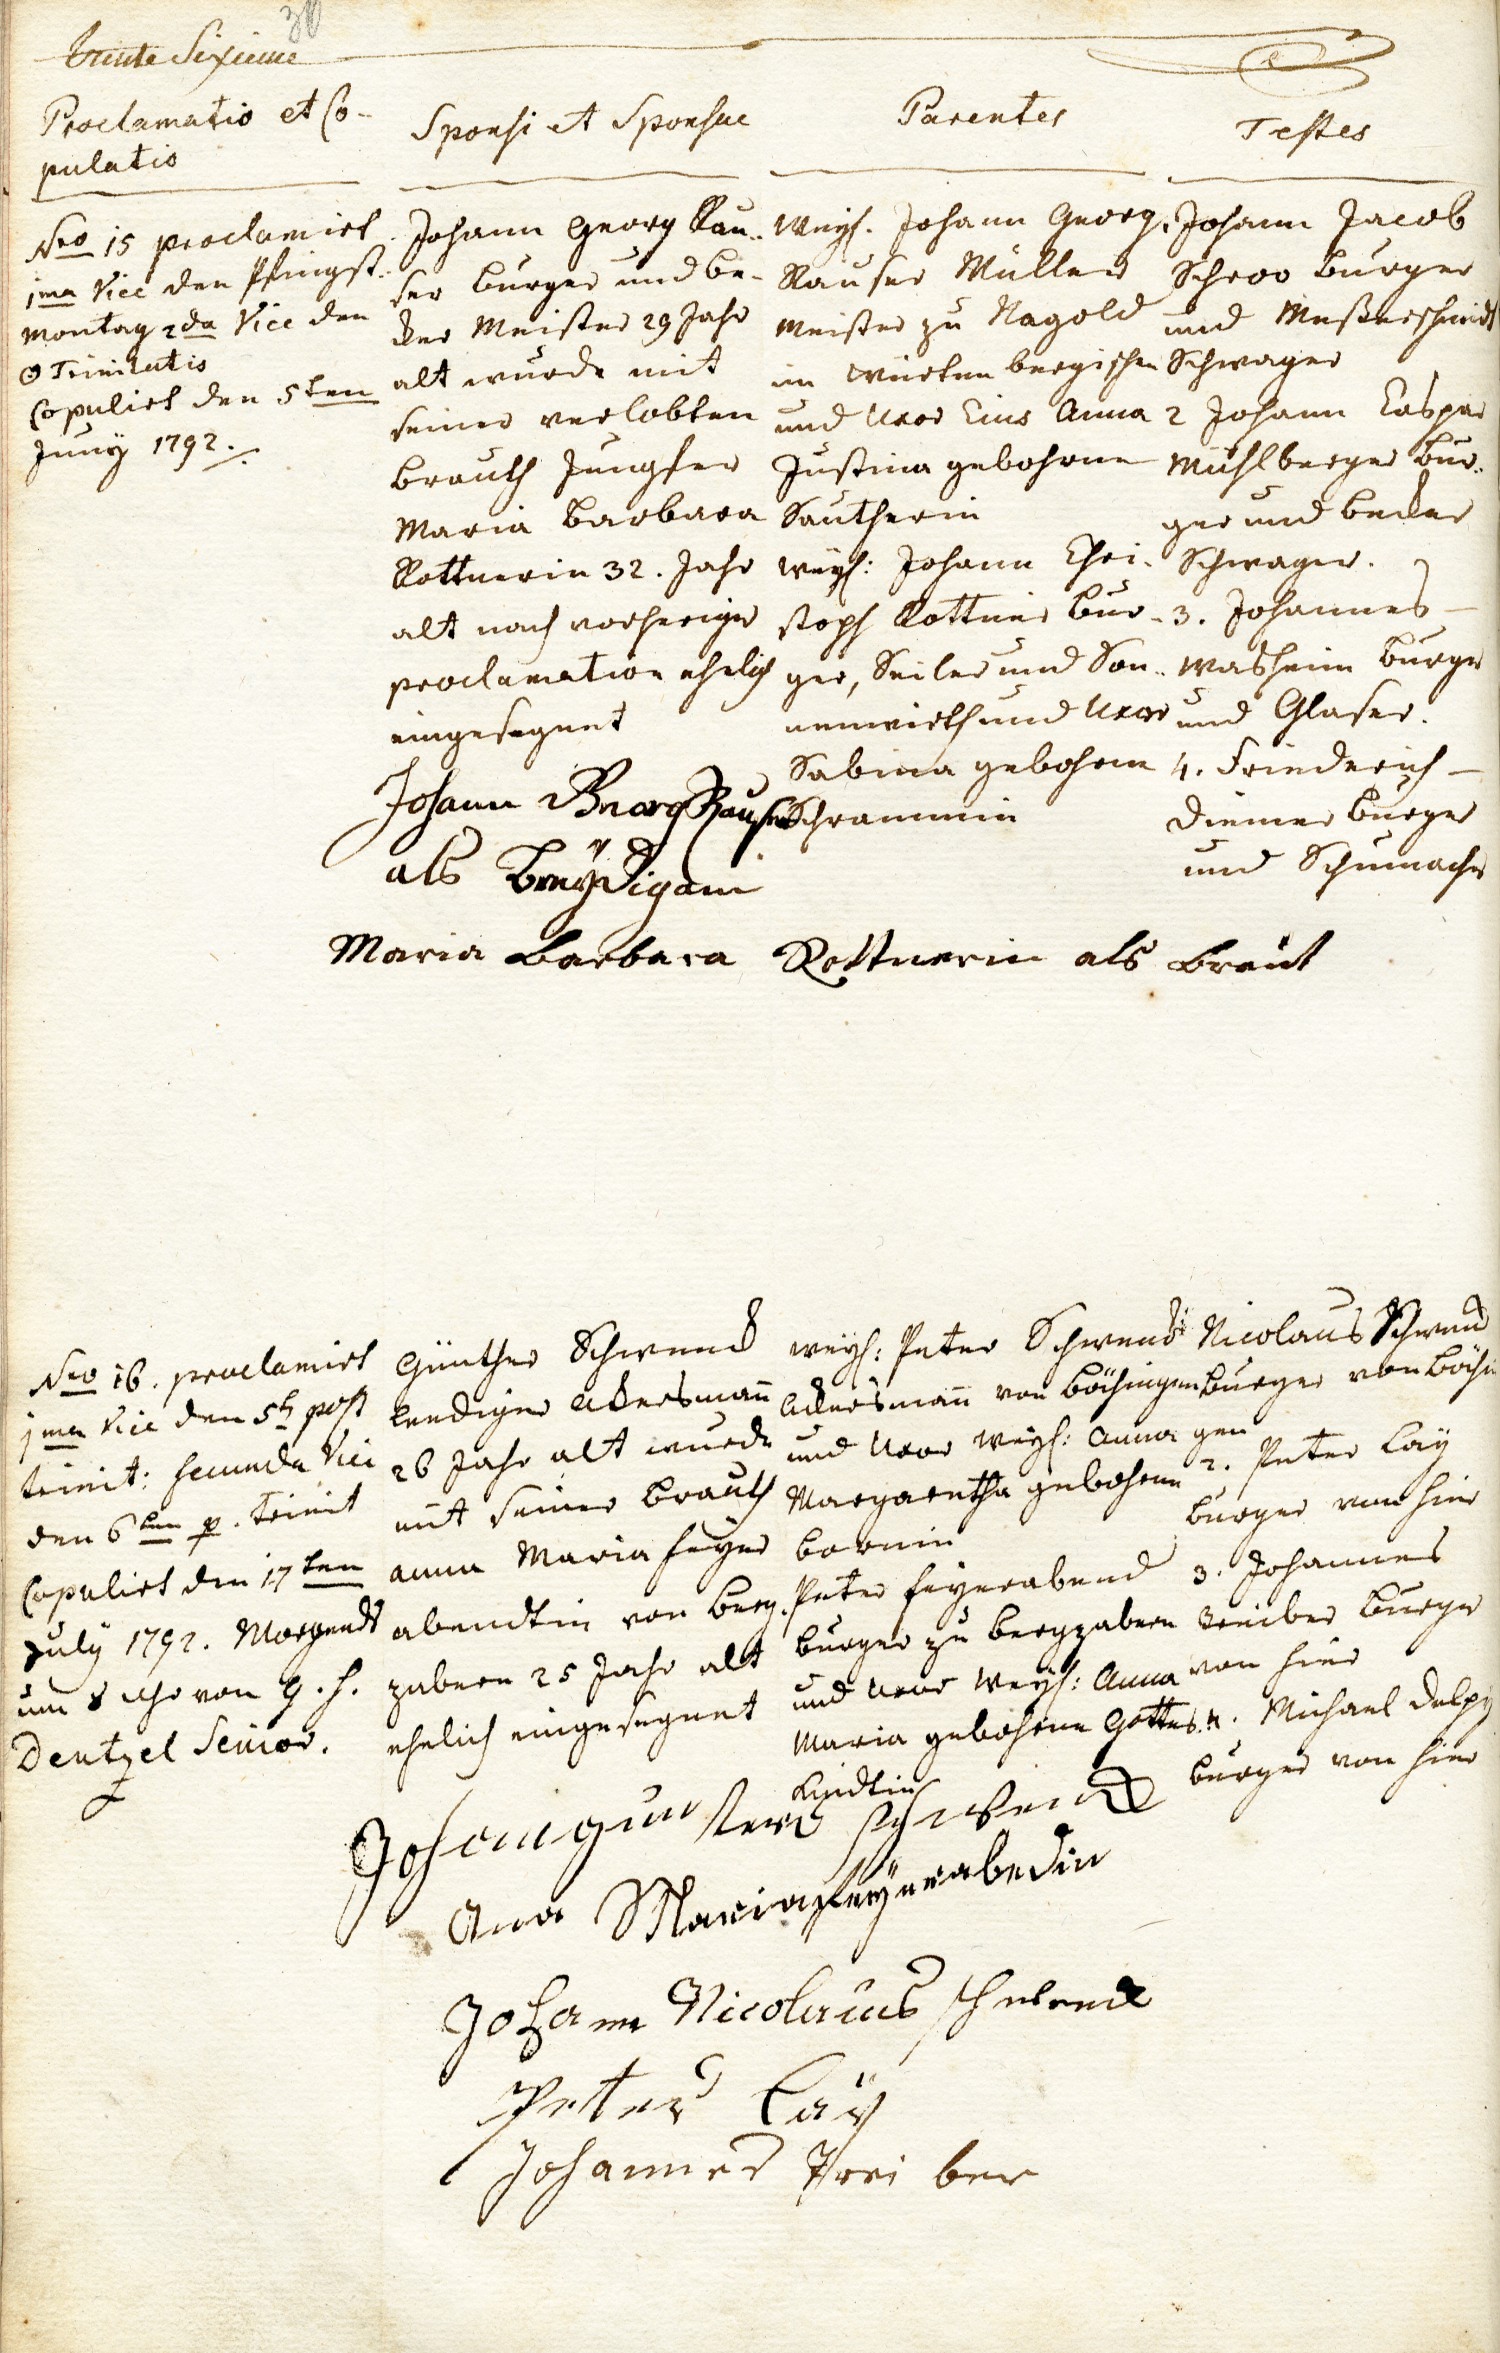 30
trente Sixieme
Proclamatio et Co-
pulatio
Sponsi et Sponsae
Parentes
Testes
Nro 15 proclamirt
1ma Vice den Pfingst-
montag 2da Vice den
☉ Trinitatis
Copulirt den 5ten
Juny 1792.
Johann Georg Rau-
ser burger und be-
cker Meister 29 Jahr
alt wurde mit
seiner verlobten
brauth Jungfer
Maria barbara
Rottnerin 32. Jahr
alt nach vorheriger
proclamation ehelich
eingesegnet
Weyl. Johann Georg
Rauser Müller
Meister zu Nagold
im würtenbergischen
und Uxor Eius Anna
Justina gebohrne
Sautherin
weyl: Johann Chri-
stoph Rottner bur-
ger, Seiler und Son-
nenwirth und Uxor
Sabina gebohrne
Schrammin
1. Johann Jacob
Schroo burger
und Meßerschmidt
Schwager
2 Johann Caspar
Mühlberger bur-
ger und becker
Schwager.
3. Johannes
Washeim burger
und Glaser.
4. Friederich
Diemer burger
und Schumacher
Johann Georg Rauser
als Breydigam
Maria barbara Rottnerin als braut
Nro 16. proclamirt
1ma Vice den 5t post
trinit: secunda Vice
den 6ten p. trinit
Copulirt den 17ten
July 1792. Morgends
um 8 Uhr von H. H.
Dentzel Senior.
Günther Schwend
leediger Ackersmann
26 Jahr alt wurde
mit seiner brauth
anna Maria feyer
abendtin von berg-
zabern 25 Jahr alt
ehelich eingesegnet
weyl: Peter Schwend
Ackersmann von böchingen
und Uxor weyl: anna
Margaretha gebohrne
bornin
Peter feyerabend
burger zu bergzabern
und Uxor weyl: Anna
Maria gebohrne Gottes
1. Nicolaus Schwend
burger von böchin
gen
2. Peter Lay
burger von hier
3. Johannes
treiber burger
von hier
4. Michael Delpy
burger von hier
Johan günters schwend
Ana Maria feyerabedin
Johann Nicolaus schwend
Peter Lay
Johannes Treiber